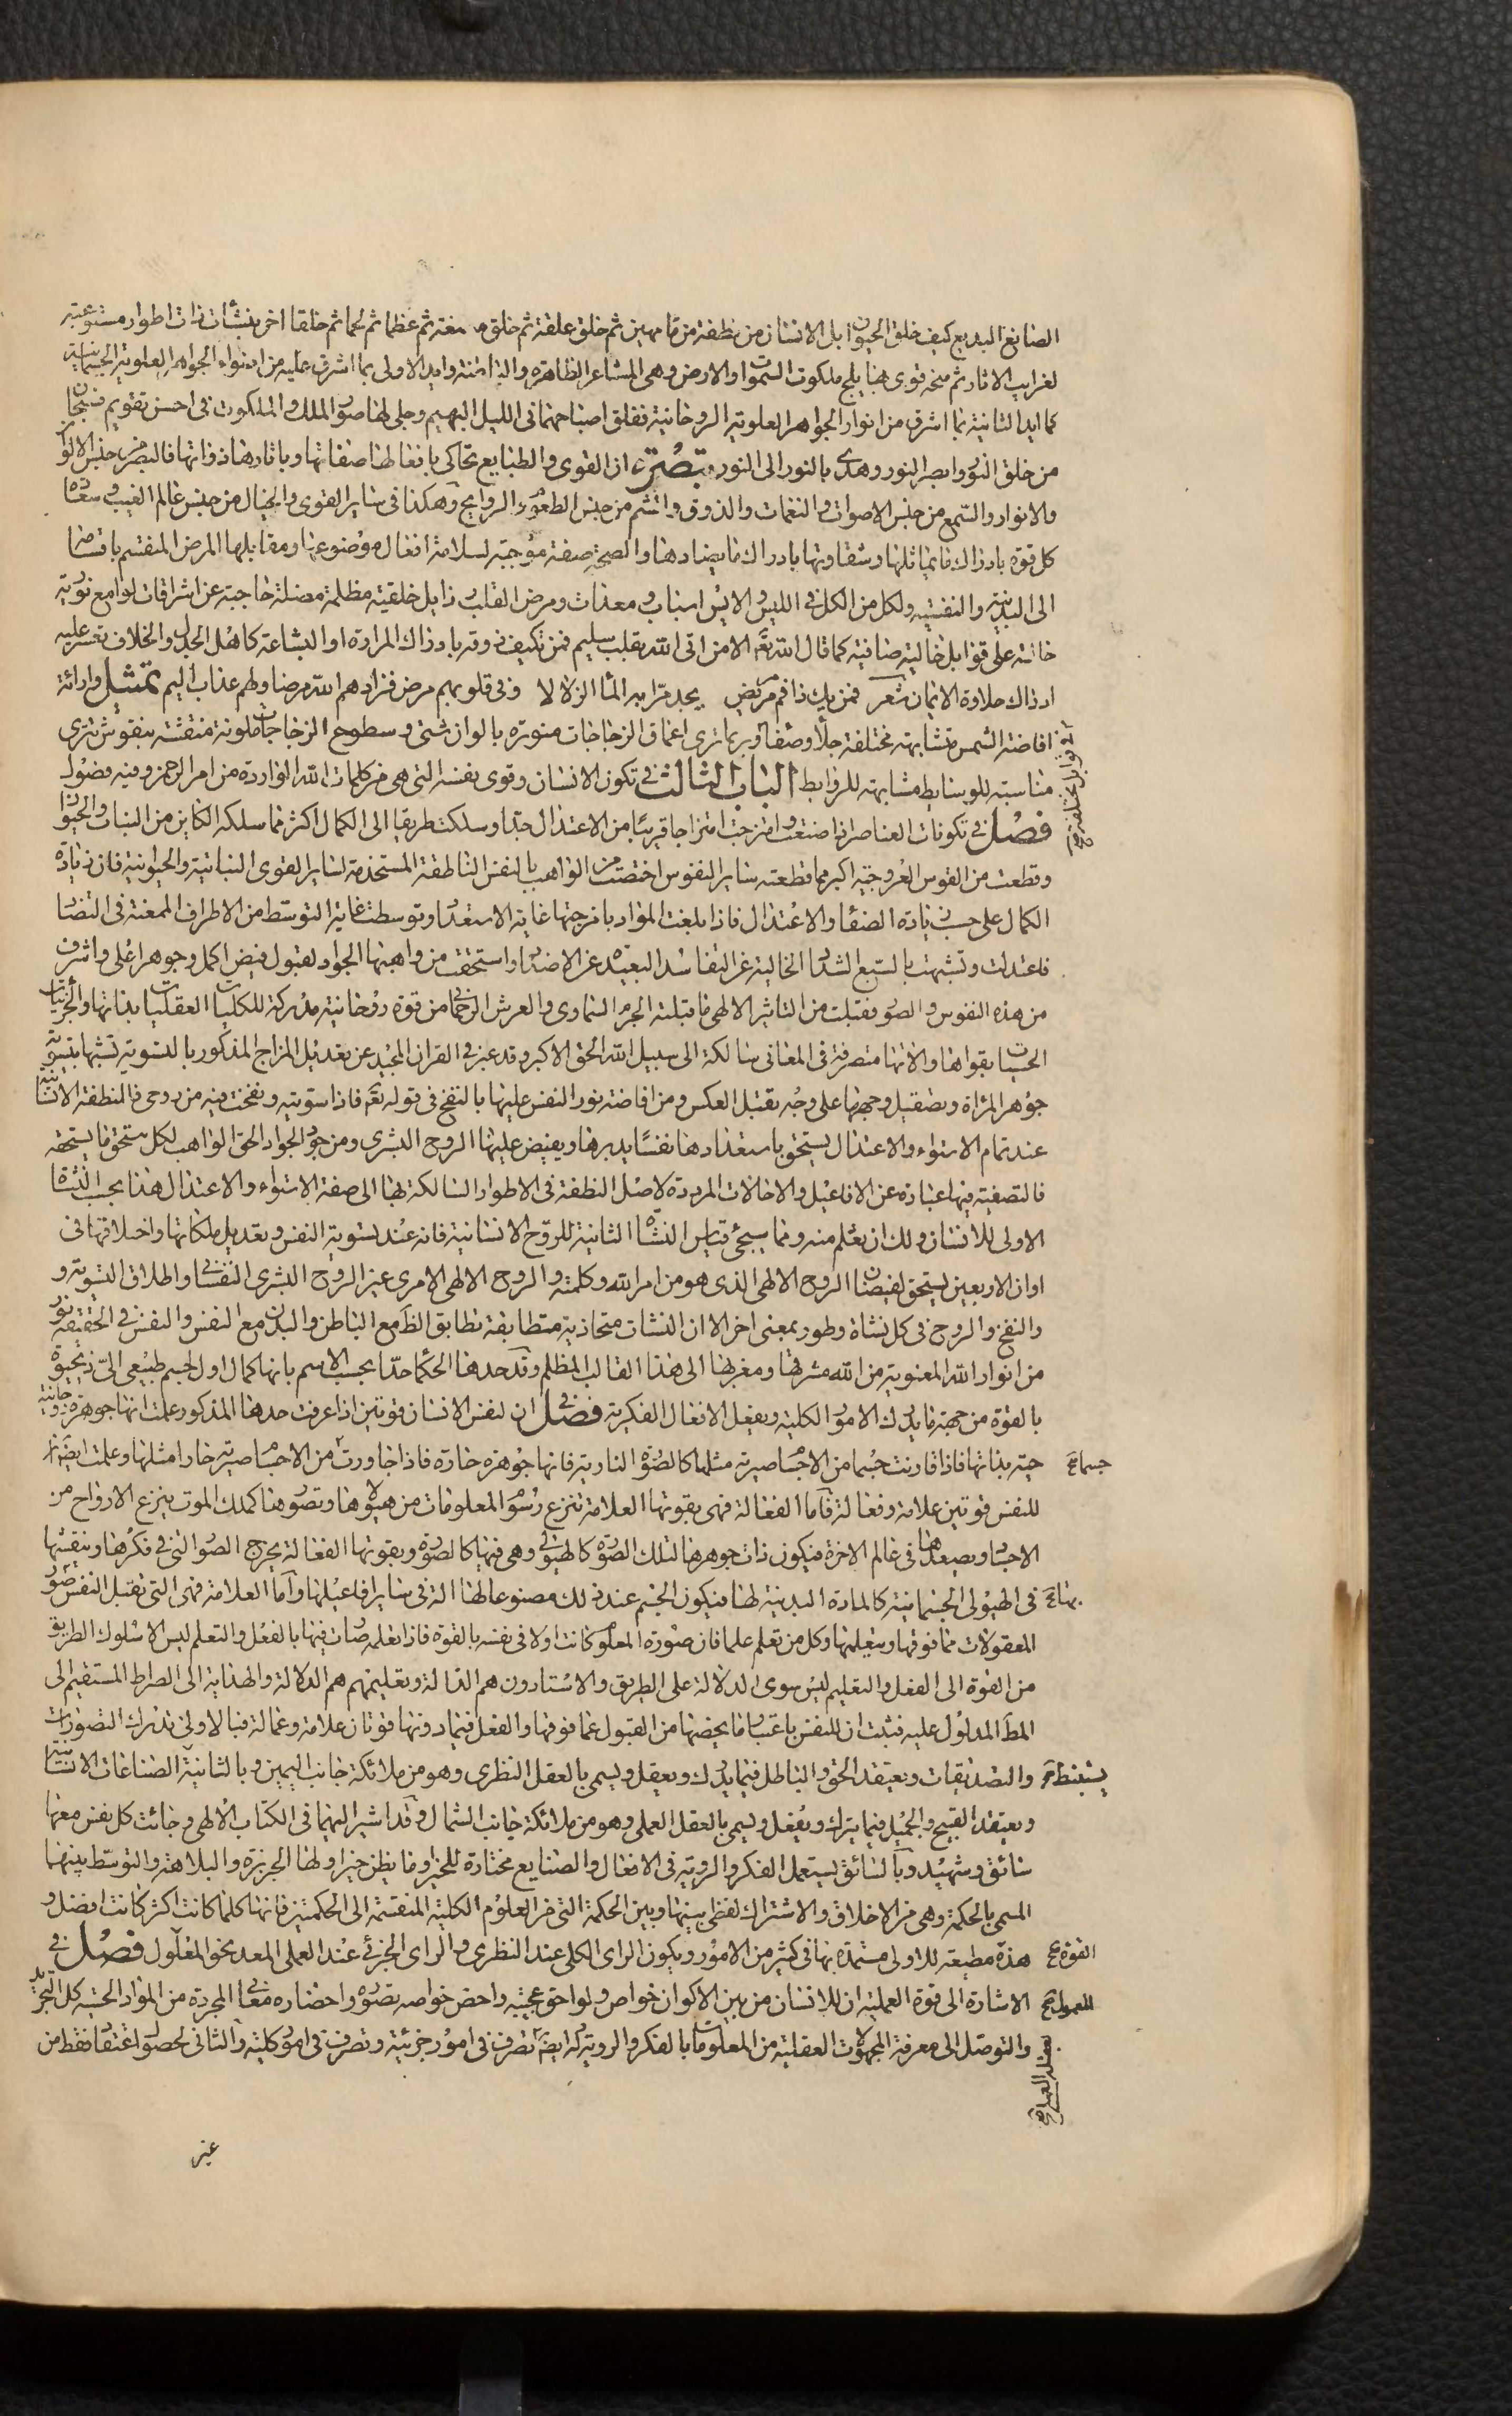 الصانع البديع كيف خلق الحيوان بل الانسان من نطفة من ماء مهين ثم خلق علقة ثم خلق مضغة ثم عظاما ثم لحما ثم خلقا اخر بنشآت ذات اطوار مستوعبة
لغرايب الاثار ثم منحه قوى بها يلج ملكوت السموات والارض وهى المشاعر الظاهرة والباطنة وايد الاولى بما اشرق عليه من اضواء الجواهر العلوية الجسمانية
كما ايد الثانية بما اشرق من انوار الجواهر العلوية الروحانية ففلق اصباحهما فى الليل البهيم وجلى لها صور الملك والملكوت فى احسن تقويم فسبحان
من خلق النور وابصر النور وهدى بالنور الى النور تبصرة ان القوى والطبايع تحاكى بافعالها صفاتها وباثارها ذواتها فالبصر من جنس الالوان
والانوار والسمع من جنس الاصوات والنغمات والذوق والشم من جنس الطعوم والروايح وهكذا فى ساير القوى والخيال من جنس عالم الغيب وسعادة
كل قوة بادراك ما يماثلها وشقاوتها بادراك ما يضادها والصحة صفة موجبة لسلامة افعال موضوعها ومقابلها المرض المنقسم باقسامها
الى البدنية والنفسية ولكل من الكل فى الليس والايس اسباب ومعدات ومرض القلب رذايل خلقية مظلمة مضلة حاجبة عن اشراقات لوامع نورية
على قوابل خالية صافية كما قال الله تعه الا من اتى الله بقلب سليم فمن تكيف ذوقه بادراك المرارة او البشاعة كاهل الجدل والخلاف تعسر عليه
ادراك حلاوة الايمان شعر فمن يك ذا فم مر مريض يجد مرا به الماء الزلالا وفى قلوبهم مرض فزادهم الله مرضا ولهم عذاب اليم تمثيل وارائة
افاضة الشمس متشابهة مختلفة جلاء وصفاء وربما ترى اعماق الزجاجات منورة بالوان شتى وسطوح الزجاجات ملونة منقشة بنقوش تترى
مناسبة للوسايط مشابهة للروابط الباب الثالث فى تكون الانسان وقوى نفسه التى هى من كلمات الله الواردة من امر الرحمن وفيه فصول
فصل فى تكونات العناصر اذا صفت وامتزجت امتزاجا قريبا من الاعتدال جدا وسلكت طريقا الى الكمال اكثر مما سلكه الكاين من النبات والحيوان
وقطعت من القوس العروجية اكبر مما قطعته ساير النفوس اختصت من الواهب بالنفس الناطقة المستخدمة لساير القوى النباتية والحيوانية فان زيادة
الكمال على حسب زيادة الصفاء والاعتدال فاذا بلغت المواد بامزجتها غاية الاستعداد وتوسطت غاية التوسط من الاطراف الممعنة فى التضاد
فاعتدلت وتشبهت بالسبع الشداد الخالية عن التفاسد البعيدة عن الاضداد واستحقت من واهبها الجواد لقبول فيض اكمل وجوهر اعلى واشرف
من هذه النفوس والصور فقبلت من التاثير الالهى ما قبلته الجرم السماوى والعرش الرحمانى من قوة روحانية مدركة للكليات العقليات بذاتها والجزئيات
الحسيات بقواها والاتها متصرفة فى المعانى سالكة الى سبيل الله الحق الاكبر وقد عبر فى القران المجيد عن تعديل المزاج المذكور بالتسوية تشبيها بتسوية
جوهر المرآة وتصقيل وجهها على وجه تقبل العكس ومن افاضة نور النفس عليها بالنفخ فى قوله تعه فاذا سويته ونفخت فيه من روحى فالنطفة الانسانية
عند تمام الاستواء والاعتدال يستحق باستعدادها نفسا يدبرها ويفيض عليها الروح البشرى ومن جود الجواد الحق الواهب لكل مستحق ما يستحقه
فالتصفية فيها عبارة عن الافاعيل والاحالات المرددة لاصل النطفة فى الاطوار السالكة بها الى صفة الاستواء والاعتدال هذا بحسب النشاة
الاولى للانسان ولك ان تعلم منه ومما سيجئ قياس النشاة الثانية للروح الانسانية فانه عند تسوية النفس وتعديل ملكاتها واخلاقها فى
اوان الاربعين يستحق لفيضان الروح الالهى الذى هو من امر الله وكلمته والروح الالهى الامرى غير الروح البشرى النفسانى واطلاق التسوية و
والنفخ والروح فى كل نشاة وطور بمعنى اخر الا ان النشات متحاذية متطابقة تطابق الظ مع الباطن والبدن مع النفس والنفس فى الحقيقة نور
من انوار الله المعنوية من الله مشرقها ومغربها الى هذا القالب المظلم وقد حدها الحكماء حدا بحسب الاسم بانها كمال اول لجسم طبيعى الى ذى حيوة
بالقوة من جهة ما يدرك الامور الكلية ويفعل الافعال الفكرية فصل فى ان لنفس الانسان قوتين اذا عرفت حدها المذكور علمت انها جوهرة روحانية
حية بذاتها فاذا قارنت جسما من الاجسام صيرته مثلها كالصورة النارية فانها جوهرة حارة فاذا جاورت من الاجسام صيرته حارا مثلها وعلمت ايضا ان
للنفس قوتين علامة وفعالة فاما الفعالة فهى بقوتها العلامة تنزع رسوم المعلومات من هيولاها وتصورها كملك الموت ينزع الارواح من
الاجساد ويصعدها فى عالم الاخرة فيكون ذات جوهرها لتلك الصورة كالهيولى وهى فيها كالصورة وبقوتها الفعالة يخرج الصور التى فى فكرها وينقشها
فى الهيولى الجسمانية كالمادة البدنية لها فيكون الجسم عند ذلك مصنوعا لها الة فى ساير افاعيلها واما العلامة فهى التى تقبل النفس صور
المعقولات مما فوقها ويتعلمها وكل من تعلم علما فان صورة المعلوم كانت اولا فى نفسه بالقوة فاذا تعلمه صارت فيها بالفعل والتعلم ليس الا سلوك الطريق
من القوة الى الفعل والتعليم ليس سوى الدلالة على الطريق والاستادون هم الدالة وتعليمهم هم الدلالة والهداية الى الصراط المستقيم الى
المط المدلول عليه فثبت ان للنفس باعتبار ما يخصها من القبول عما فوقها والفعل فيما دونها قوتان علامة وعمالة فبالاولى تدرك التصورات
والتصديقات وتعتقد الحق والباطل فيما يدرك ويعقل ويسمى بالعقل النظرى وهو من ملائكة جانب اليمين وبالثانية الصناعات الانسانية
وتعتقد القبيح والجميل فيما يترك ويفعل ويسمى بالعقل العملى وهو من ملائكة جانب الشمال وقد اشير اليهما فى الكتاب الالهى وجائت كل نفس معها
سائق وشهيد وبالسائق يستعمل الفكر والروية فى الافعال والصنايع مختارة للخير او ما يظن خيرا ولها الجربزة والبلاهة والتوسط بينهما
المسمى بالحكمة وهى من الاخلاق والاشتراك لفظى بينها وبين الحكمة التى من العلوم الكلية المنقسمة الى الحكمتين فانها كلما كانت اكثر كانت افضل و
هذه مطيعة للاولى مستمدة بها فى كثير من الامور ويكون الراى الكلى عند النظرى والراى الجزئى عند العملى المعد نحو المفعول فصل فى
الاشارة الى قوة العملية ان للانسان من بين الاكوان خواص ولواحق عجيبة واخص خواصه تصوره واحضاره معانى المجردة من المواد الحسية كل التجريد
والتوصل الى معرفة المجهولات العقلية من المعلومات بالفكر والروية وله ايضا تصرف فى امور جزئية وتصرف فى امور كلية والثانى لحصول اعتقاد فقط من
جسما
بها
يستنبط
القوة
غير